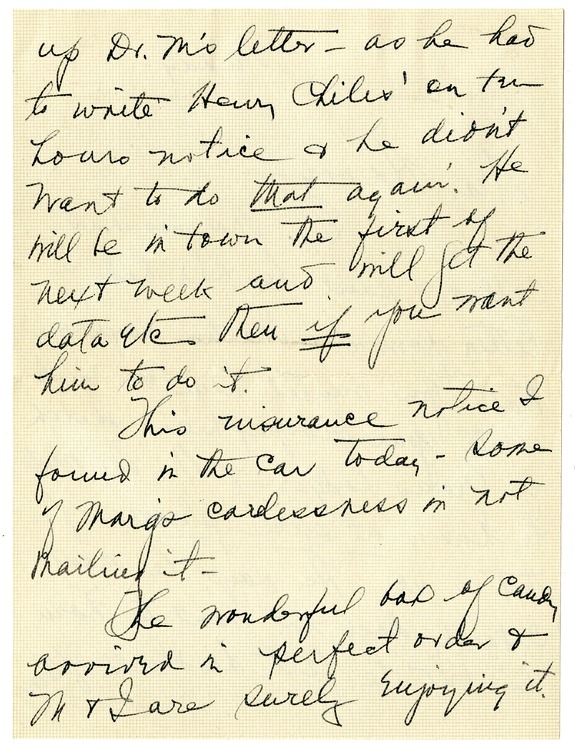 up Dr. M's letter - as he had
to write Henry Chiles' on two
hours notice & he didn't
want to do that again. He
will be in town the first of
next week and will get the
data etc then if you want
him to do it.
This insurance notice I
found in the car today - some
of Marg's carlessness in not
mailing it -
The wonderful box of candy
arrived in perfect order &
M & I are surely enjoying it.